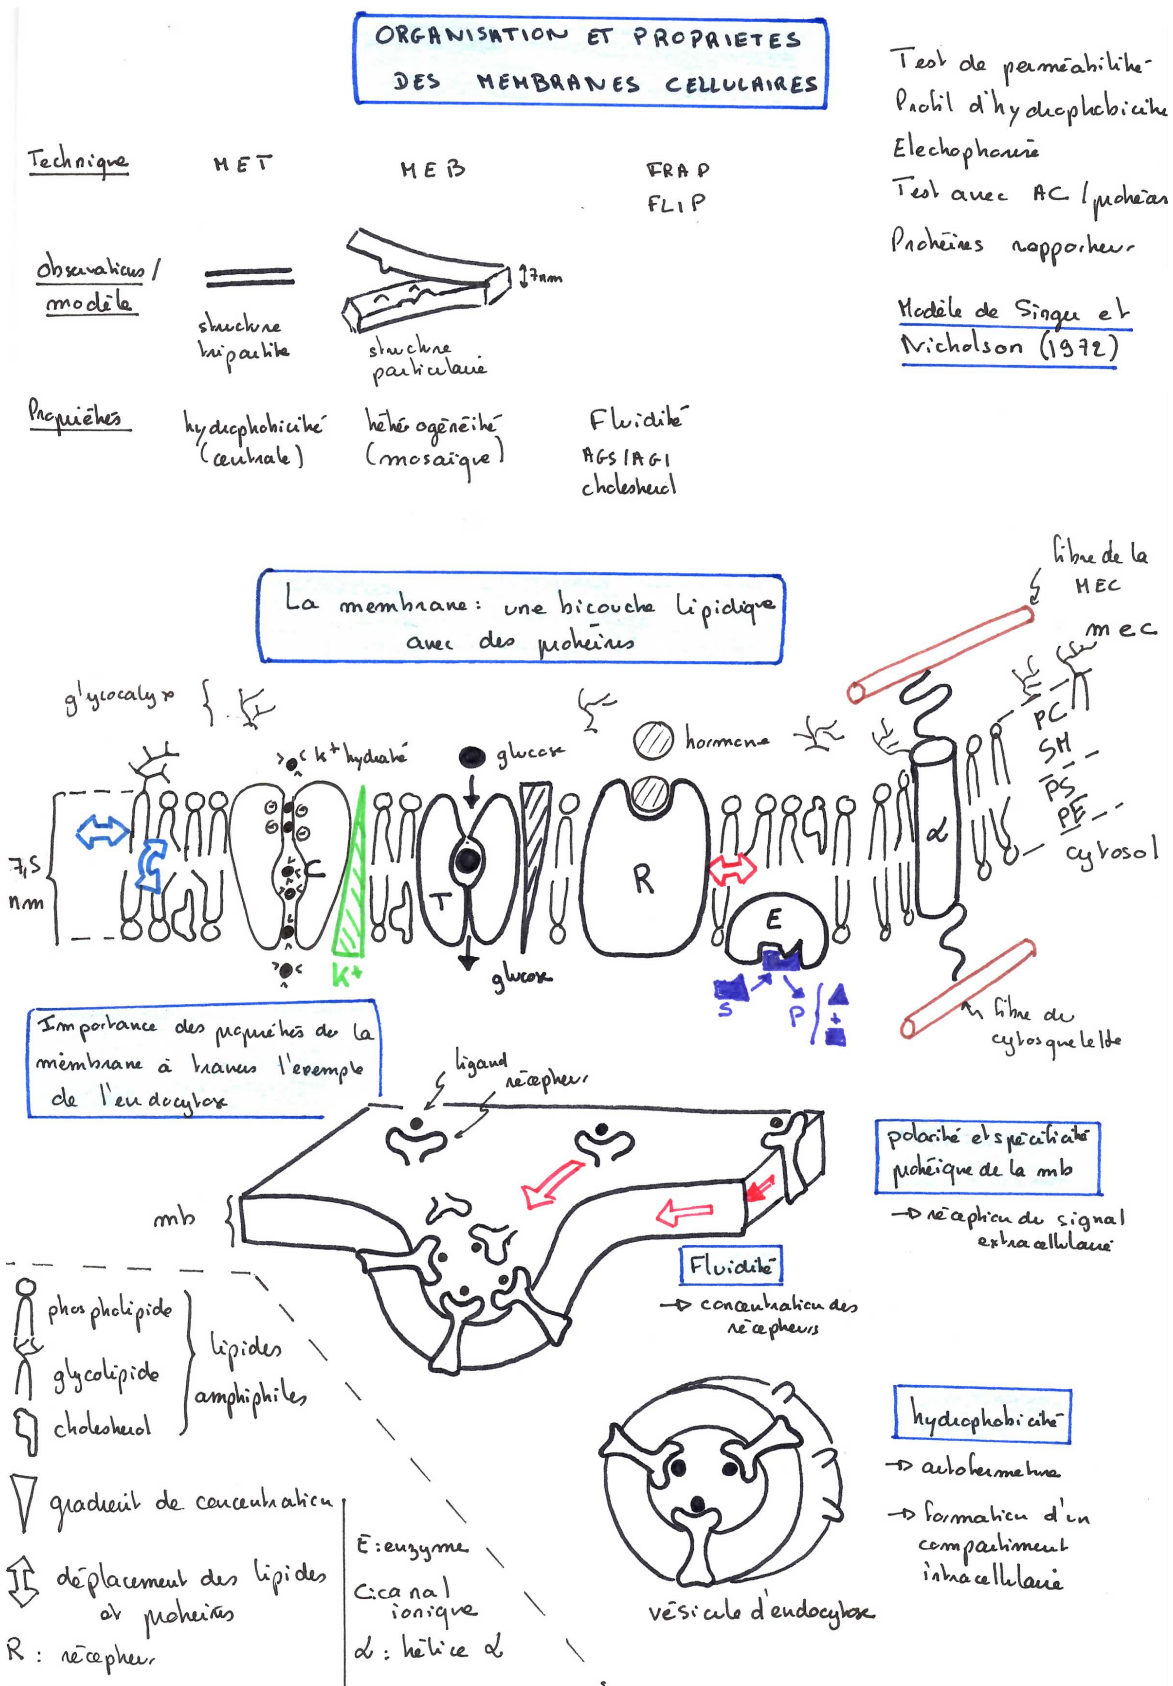 ORGANISATION ET PROPRIETES
DES MEMBRANES CELLULAIRES
Test de perméabilité
Profil d'hydrophobicité
Electrophorèse
Test avec AC / protéas
Protéines rapporteur
Modèle de Singer et
Nicholson (1972)
Technique
MET
MEB
FRAP
FLIP
observations /
modèle
structure
tripartite
7nm
structure
particulaire
Propriétés
hydrophobicité
(centrale)
hétérogénéité
(mosaïque)
Fluidité
AGS/AGI
cholestérol
La membrane: une bicouche lipidique
avec des protéines
fibre de la
MEC
mec
glycocalyx
K+ hydraté
glucose
hormone
PC
SM
PS
PE
cytosol
7,5
nm
C
T
R
E
α
K+
glucose
S
P
+
fibre du
cytosquelette
Importance des propriétés de la
membrane à travers l'exemple
de l'endocytose
ligand
récepteur
mb
polarité et spécificité
protéique de la mb
→ réception du signal
extracellulaire
Fluidité
→ concentration des
récepteurs
hydrophobicité
→ autofermeture
→ formation d'un
compartiment
intracellulaire
vésicule d'endocytose
phospholipide
glycolipide
cholestérol
lipides
amphiphiles
gradient de concentration
déplacement des lipides
et protéines
R : récepteur
E : enzyme
C: canal
ionique
α : hélice α